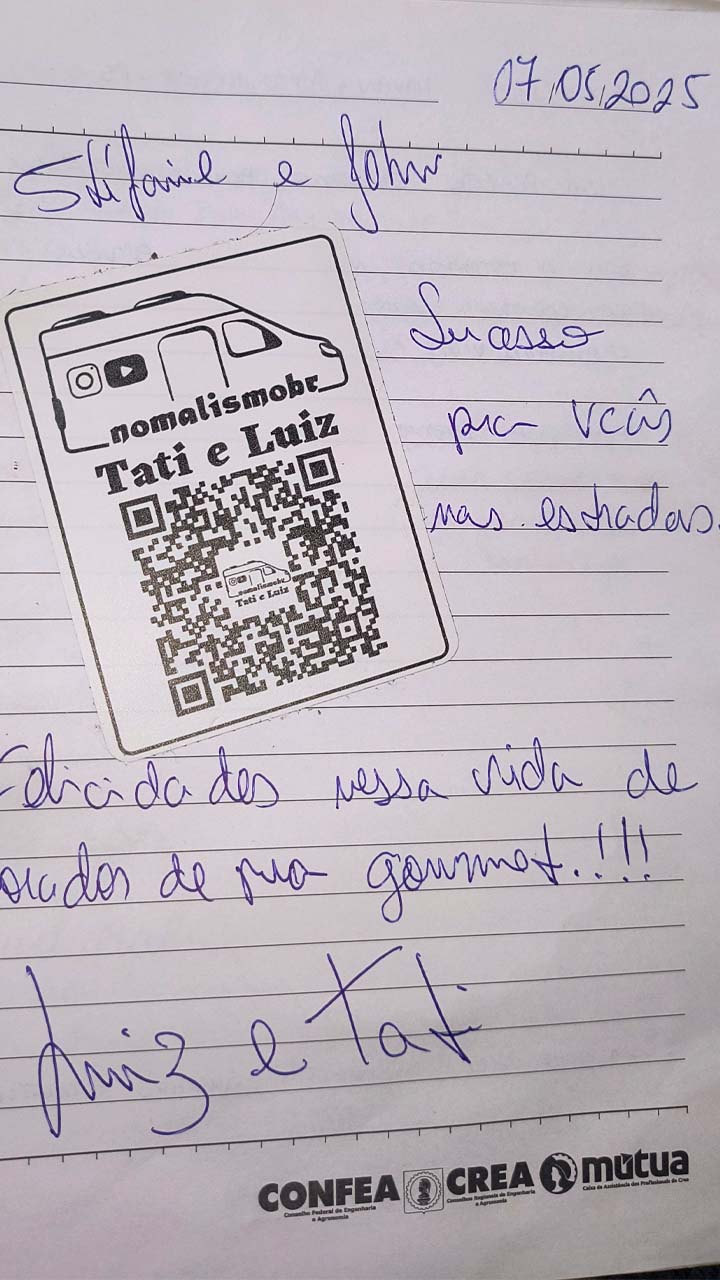 07.05.2025
Stéfanie e John
Sucesso
pra vcês
nas estradas.
nomalismobr
Tati e Luiz
nomalismobr
Tati e Luiz
Felicidades nessa vida de
oradores de rua gourmet.!!!
Luiz e Tati
CONFEA
Conselho Federal de Engenharia
e Agronomia
CREA
Conselhos Regionais de Engenharia
e Agronomia
mútua
Caixa de Assistência dos Profissionais do Crea